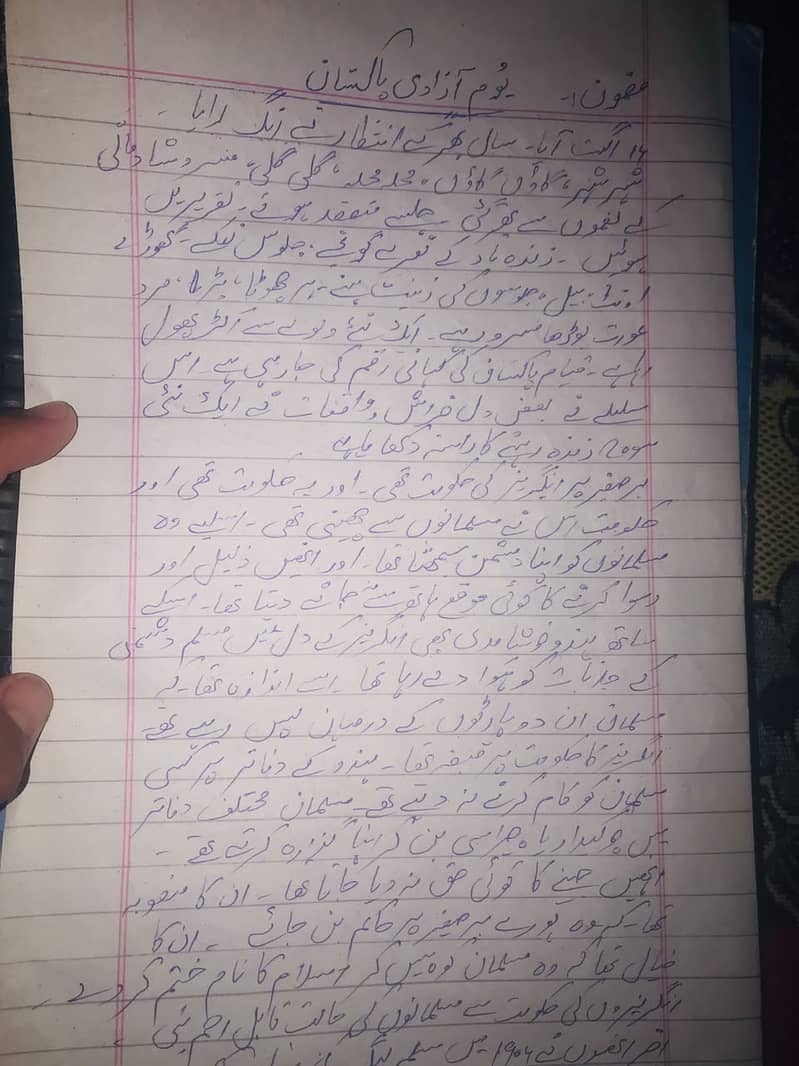 مضمون:۔ یوم آزادی پاکستان
14 اگست آیا۔ سال بھر کے انتظار نے رنگ لایا۔
شہر شہر، گاؤں گاؤں، محلہ محلہ، گلی گلی۔ مسرو شادمانی
کے نغموں سے بھر گئی۔ جلسے منعقد ہوئے۔ تقریریں
ہوئیں۔ زندہ باد کے نعرے گونجے، جلوس نکلے۔ گھوڑے
اونٹ، بیل، جلوسوں کی زینت بنے۔ ہر چھوٹا، بڑا، مرد
عورت بوڑھا مسرور ہے۔ ایک نئے ولولے سے اکٹر پھول
رہا ہے۔ قیام پاکستان کی کہانی رقم کی جا رہی ہے۔ اس
سلسلے نے بعض دل خراش واقعات نے ایک نئی
زندہ رہنے کا راستہ دکھایا ہے
برصغیر پر انگریز کی حکومت تھی۔ اور یہ حکومت تھی اور
حکومت اس نے مسلمانوں سے چھینی تھی۔ اسلیے وہ
مسلمانوں کو اپنا دشمن سمجھتا تھا۔ اور انھیں ذلیل اور
رسوا کرنے کا کوئی موقع ہاتھ سے نہ جانے دیتا تھا۔ اسکے
ساتھ ہندو خوشامدی بھی انگریز کے دل میں مسلم دشمنی
کے جذبات کو ہوا دے رہا تھا۔ اسے اندازہ تھا۔ کہ
مسلمان ان دو پاٹوں کے درمیان پس رہے تھے۔
انگریز کا حکومت پر قبضہ تھا۔ ہندو کے دفاتر پر کسی
مسلمان کو کام کرنے نہ دیتے تھے۔ مسلمان مختلف دفاتر
میں چوکیدار یا چپڑاسی بن کر اپنا گزارہ کرتے تھے۔
انھیں جینے کا کوئی حق نہ دیا جاتا تھا۔ ان کا منصوبہ
تھا۔ کہ وہ پورے برصغیر پر حاکم بن جائے۔ ان کا
خیال تھا کہ وہ مسلمان کو پیس کر اسلام کا نام ختم کر دے۔
انگریزوں کی حکومت سے مسلمانوں کی حالت قابل رحم بنی،
آخر انھوں نے 1906 میں مسلم لیگ